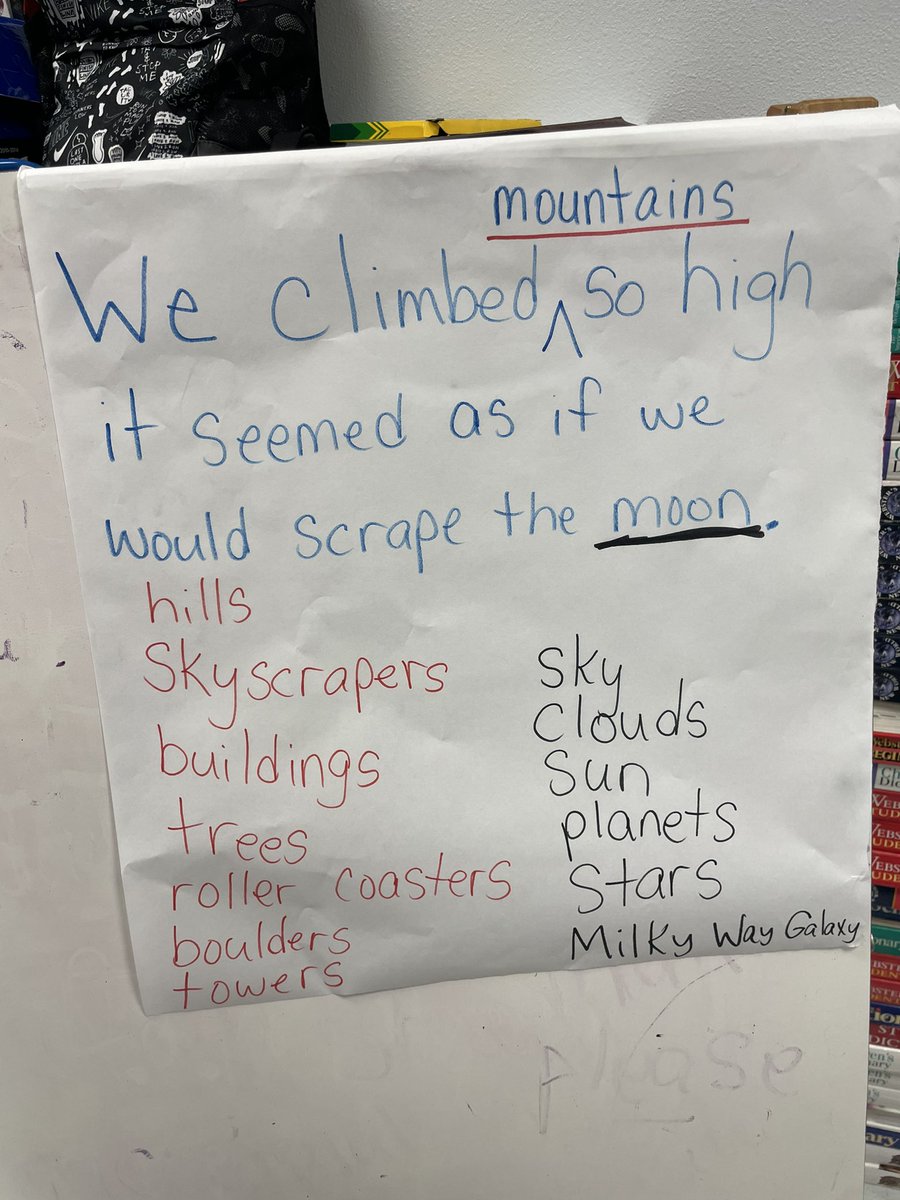 mountains
We climbed ^ so high
it seemed as if we
would scrape the moon.
hills
Skyscrapers
buildings
trees
roller coasters
boulders
towers
sky
clouds
sun
planets
stars
Milky Way Galaxy
please